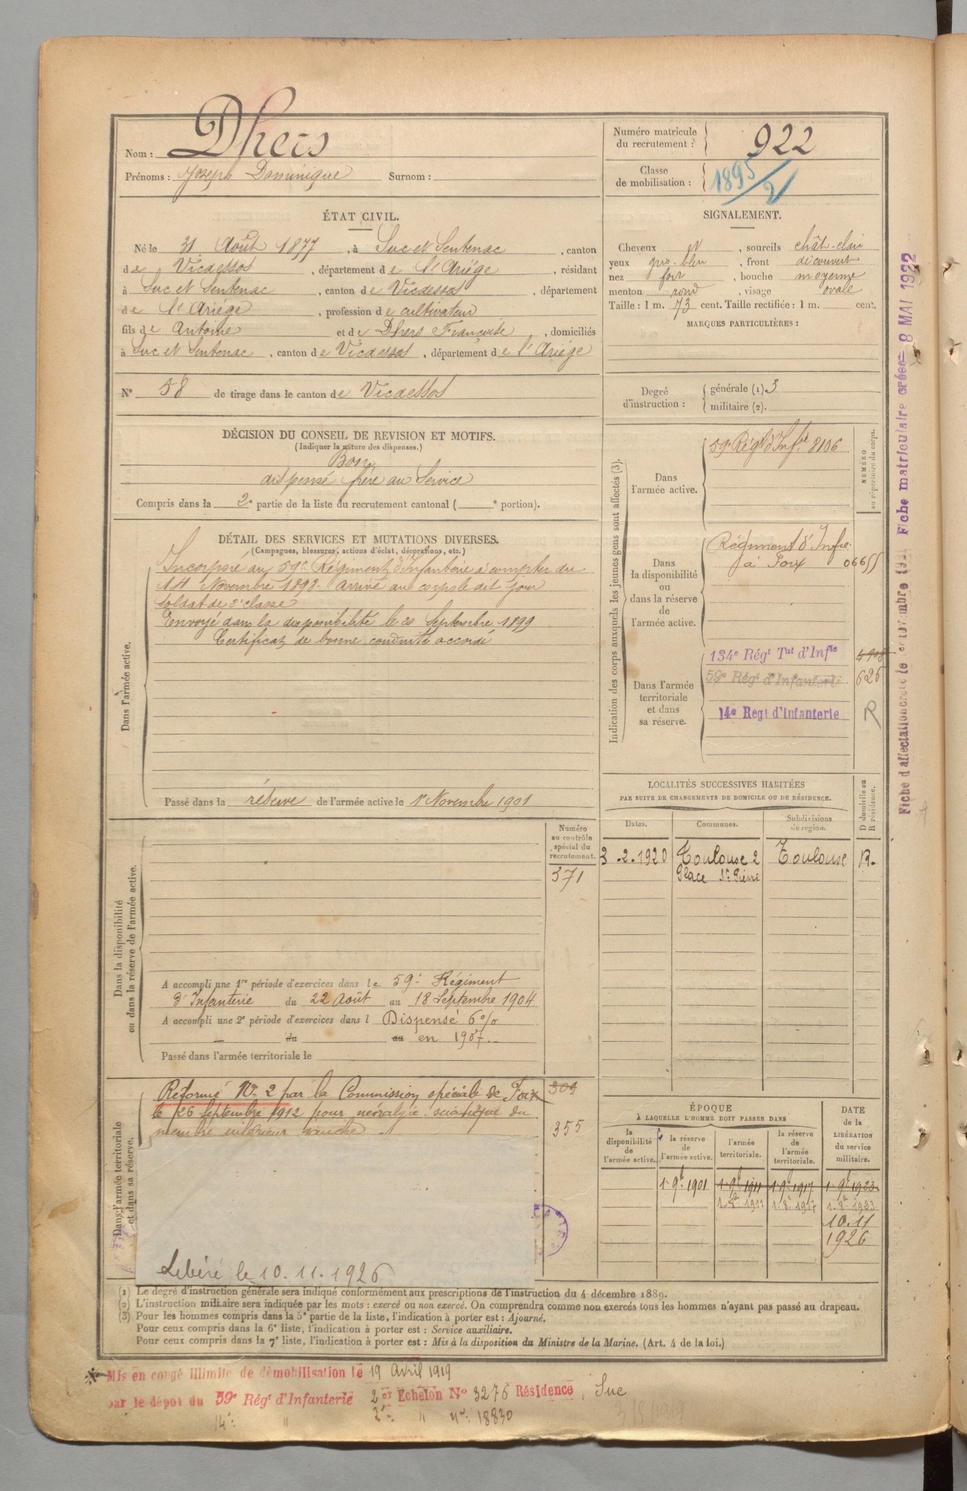 Nom : Dhers
Prénoms : Joseph Dominique Surnom :
Numéro matricule du recrutement : 922
Classe de mobilisation : 1895/2
ÉTAT CIVIL.
Né le 31 Août 1877, à Suc et Sentenac, canton
de Vicdessos, département de l'Ariége, résidant
à Suc et Sentenac, canton de Vicdessos, département
de l'Ariége, profession de cultivateur
fils de Antoine et de Dhers Françoise, domiciliés
à Suc et Sentenac, canton de Vicdessos, département de l'Ariége
N° 58 de tirage dans le canton de Vicdessos
SIGNALEMENT.
Cheveux et, sourcils chât-clair
yeux gris-bleu, front découvert
nez fort, bouche moyenne
menton rond, visage ovale
Taille : 1 m. 73 cent. Taille rectifiée : 1 m. cent.
MARQUES PARTICULIÈRES :
Degré d'instruction : générale (1) 3
militaire (2).
DÉCISION DU CONSEIL DE REVISION ET MOTIFS.
(Indiquer la nature des dispenses.)
Bon
dispensé frère au Service
Compris dans la 2e partie de la liste du recrutement cantonal ( e portion).
DÉTAIL DES SERVICES ET MUTATIONS DIVERSES.
(Campagnes, blessures, actions d'éclat, décorations, etc.)
Dans l'armée active.
Incorporé au 59e Régiment d'Infanterie à compter du
14 Novembre 1898. Arrivé au corps le dit jour
soldat de 2e classe
Envoyé dans la disponibilité le 20 Septembre 1899
Certificat de bonne conduite accordé
Passé dans la réserve de l'armée active le 1er Novembre 1901
Indication des corps auxquels les jeunes gens sont affectés (3).
NUMÉRO au répertoire du corps.
Dans l'armée active.
59e Régt d'Infrie 8106
Dans la disponibilité ou dans la réserve de l'armée active.
Régiment d'Infie
à Foix 06655
Dans l'armée territoriale et dans sa réserve.
134e Régt Tal d'Infie
59e Régt d'Infanterie 626
14e Régt d'Infanterie R
LOCALITÉS SUCCESSIVES HABITÉES
PAR SUITE DE CHANGEMENTS DE DOMICILE OU DE RÉSIDENCE.
Dates. Communes. Subdivisions de région. D domicile ou R résidence.
3.2.1920 Toulouse 2 Toulouse R.
Place St Pierre
Dans la disponibilité ou dans la réserve de l'armée active.
Numéro au contrôle spécial du recrutement.
371
A accompli une 1re période d'exercices dans le 59e Régiment
d'Infanterie du 22 Août au 18 Septembre 1904
A accompli une 2e période d'exercices dans l Dispensé 6%
du au en 1907.
Passé dans l'armée territoriale le
Dans l'armée territoriale et dans sa réserve.
Réformé No 2 par la Commission spéciale de Foix 309
le 26 septembre 1912 pour névralgie sciatique du
membre inférieur gauche. 355
Libéré le 10.11.1926
ÉPOQUE
À LAQUELLE L'HOMME DOIT PASSER DANS
la disponibilité de l'armée active. la réserve de l'armée active. l'armée territoriale. la réserve de l'armée territoriale.
DATE de la LIBÉRATION du service militaire.
1-9bre 1901 1-9bre 1911 1-9bre 1917 1-9bre 1923
10.11
1926
(1) Le degré d'instruction générale sera indiqué conformément aux prescriptions de l'instruction du 4 décembre 1889.
(2) L'instruction militaire sera indiquée par les mots : exercé ou non exercé. On comprendra comme non exercés tous les hommes n'ayant pas passé au drapeau.
(3) Pour les hommes compris dans la 5e partie de la liste, l'indication à porter est : Ajourné.
Pour ceux compris dans la 6e liste, l'indication à porter est : Service auxiliaire.
Pour ceux compris dans la 7e liste, l'indication à porter est : Mis à la disposition du Ministre de la Marine. (Art. 4 de la loi.)
Mis en congé illimité de démobilisation le 19 Avril 1919
par le dépôt du 59e Régt d'Infanterie 2er Echelon No 3276 Résidence, Suc
14e " 2e " No 18830
Fiche matriculaire créée = 8 MAI 1922